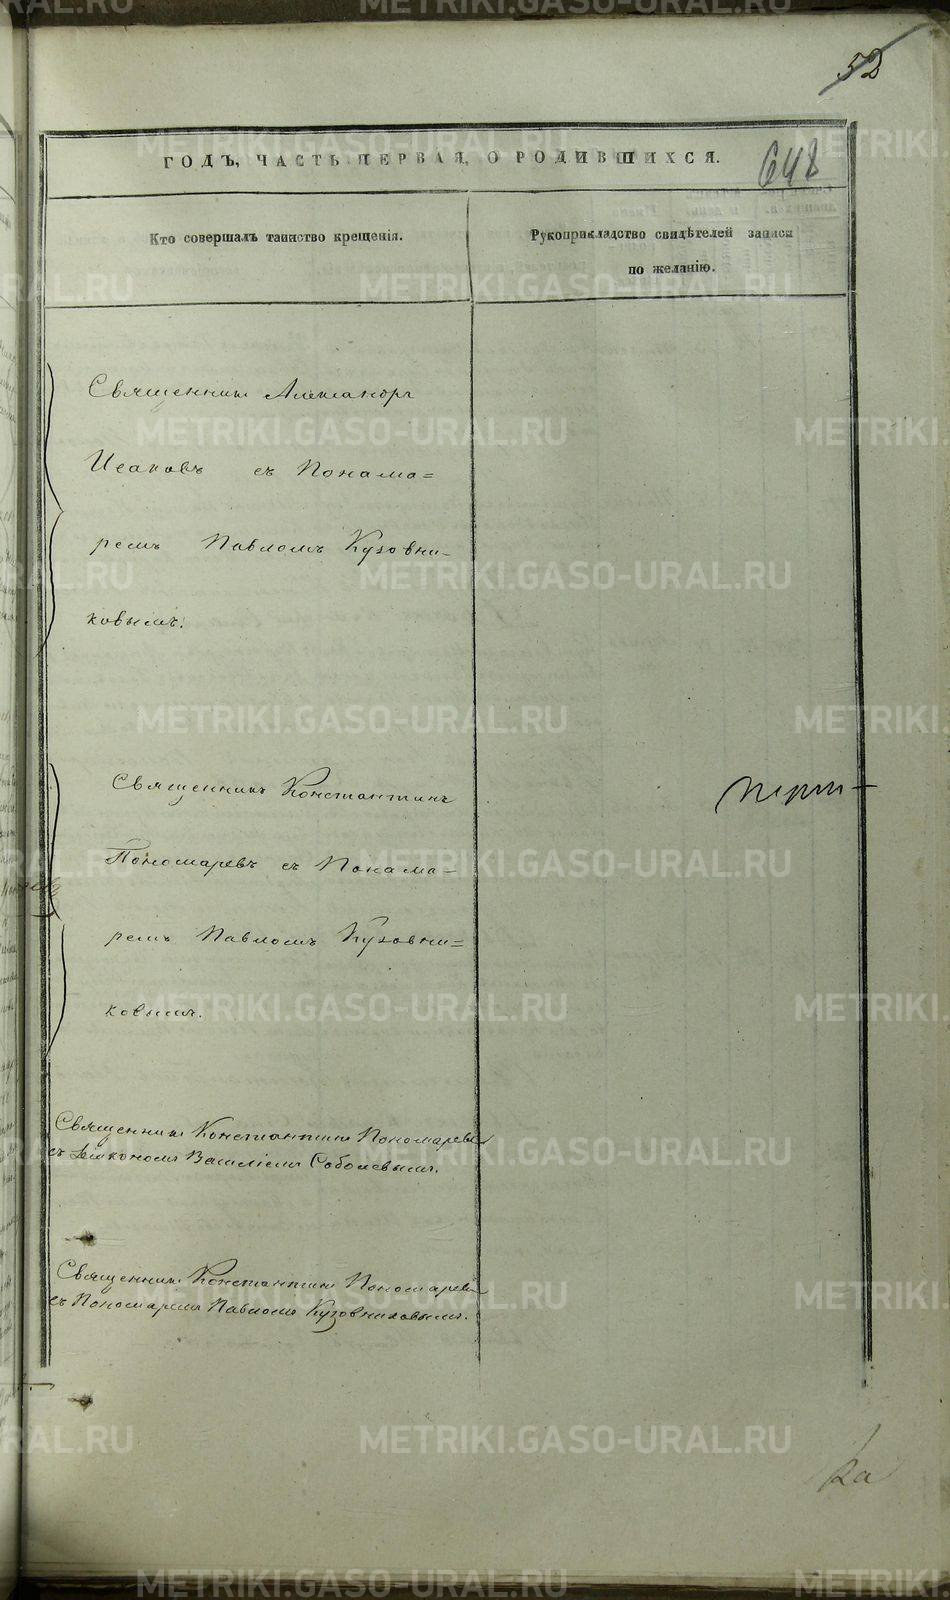 52
ГОДЪ, ЧАСТЬ ПЕРВАЯ, О РОДИВШИХСЯ.
648
Кто совершалъ таинство крещенія.
Рукоприкладство свидѣтелей записи
по желанію.
Священникъ Александръ
Исаковъ съ Понама=
ремъ Павломъ Кузовни-
ковымъ.
Священникъ Константинъ
Пономаревъ съ Понама-
ремъ Павломъ Кузовни=
ковымъ.
Священникъ Константинъ Пономаревъ
съ Діакономъ Василіемъ Соболевымъ.
Священникъ Константинъ Пономаревъ
съ Пономаремъ Павломъ Кузовниковымъ.
METRIKI.GASO-URAL.RU